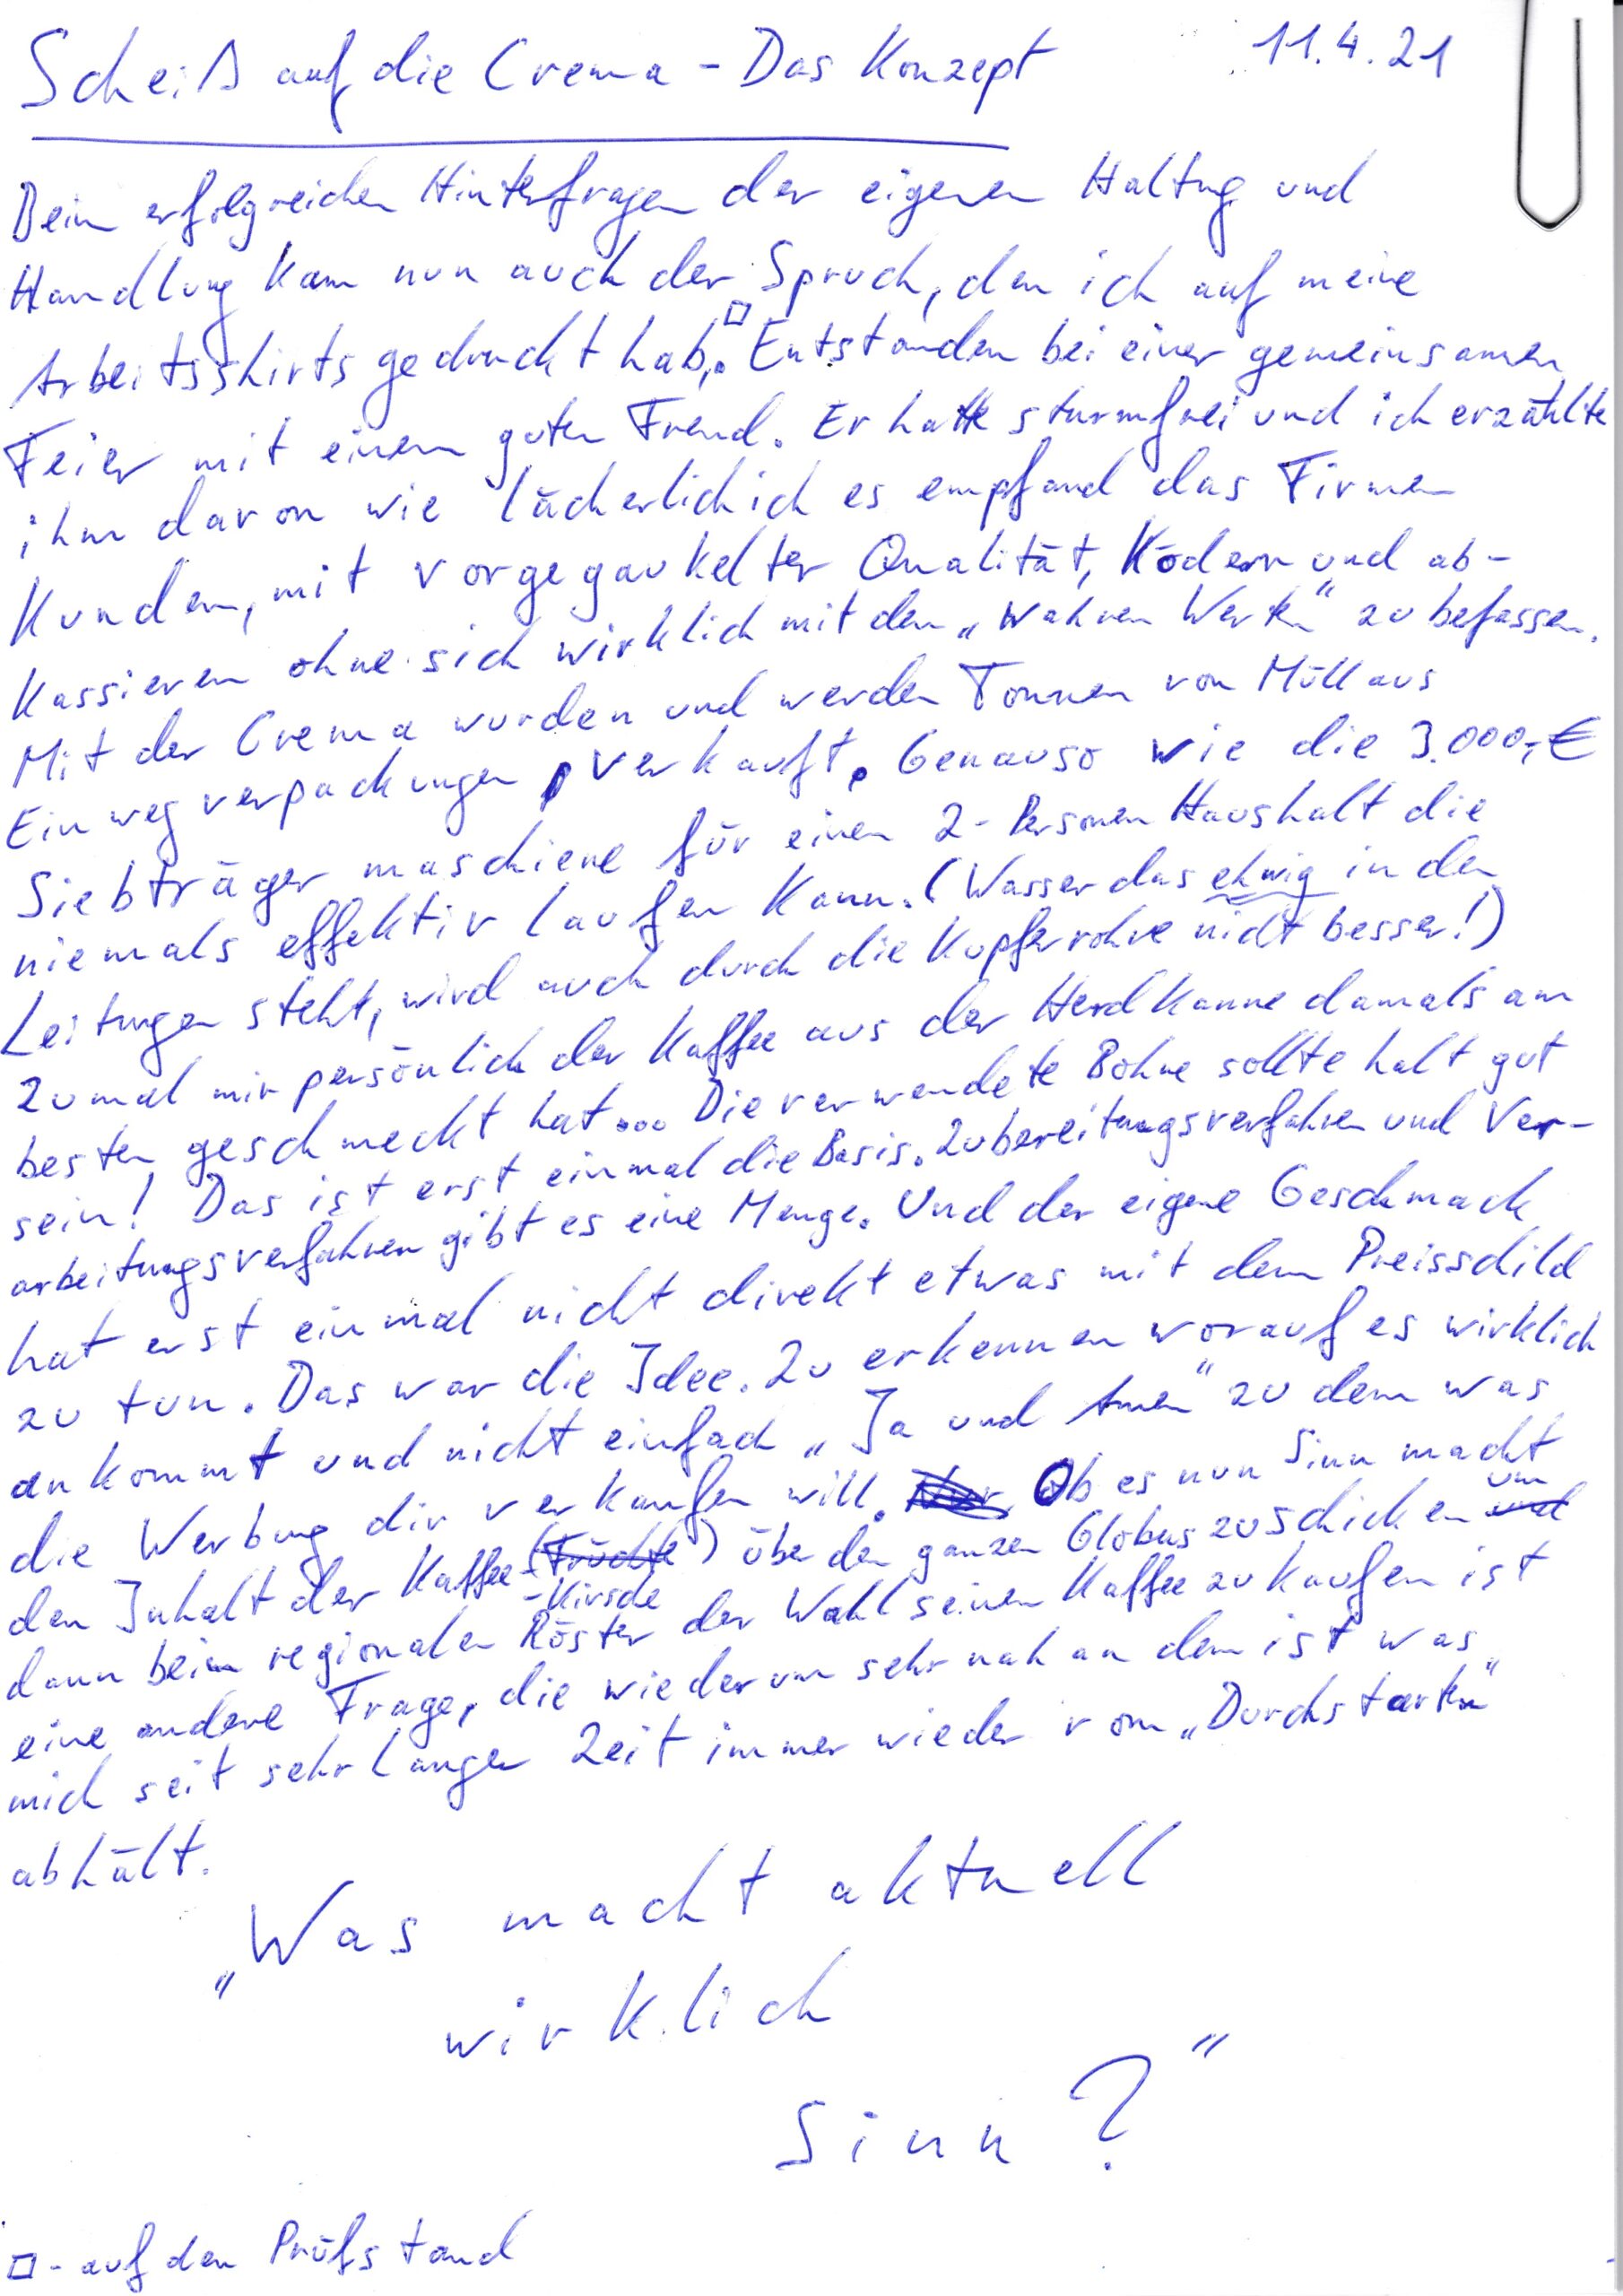 Scheiß auf die Crema - Das Konzept 11.4.21
Beim erfolgreichen Hinterfragen der eigenen Haltung und
Handlung kam nun auch der Spruch, den ich auf meine
Arbeitsshirts gedruckt hab,□. Entstanden bei einer gemeinsamen
Feier mit einem guten Freund. Er hatte sturmfrei und ich erzählte
ihm davon wie lächerlich ich es empfand das Firmen
Kunden, mit vorgegaukelter Qualität, Ködern und ab-
kassieren ohne sich wirklich mit den „wahren Werten" zu befassen.
Mit der Crema wurden und werden Tonnen von Müll aus
Einwegverpackungen, verkauft. Genauso wie die 3.000,-€
Siebträger maschiene für einen 2-Personen Haushalt die
niemals effektiv laufen kann. (Wasser das ehwig in den
Leitungen steht, wird auch durch die Kupferrohre nicht besser!)
Zumal mir persönlich der Kaffee aus der Herdkanne damals am
besten geschmeckt hat... Die verwendete Bohne sollte halt gut
sein! Das ist erst einmal die Basis. Zubereitungsverfahren und Ver-
arbeitungsverfahren gibt es eine Menge. Und der eigene Geschmack
hat erst einmal nicht direkt etwas mit dem Preisschild
zu tun. Das war die Idee. Zu erkennen worauf es wirklich
ankommt und nicht einfach „Ja und Amen" zu dem was
die Werbung dir verkaufen will. Ob es nun Sinn macht
den Inhalt der Kaffee-(Früchte) -Kirsche über den ganzen Globus zu schicken um
dann beim regionalen Röster der Wahl seinen Kaffee zu kaufen ist
eine andere Frage, die wiederum sehr nah an dem ist was
mich seit sehr langer Zeit immer wieder vom „Durchstarten"
abhält.
„Was macht aktuell
wirklich
Sinn?"
□ - auf den Prüfstand